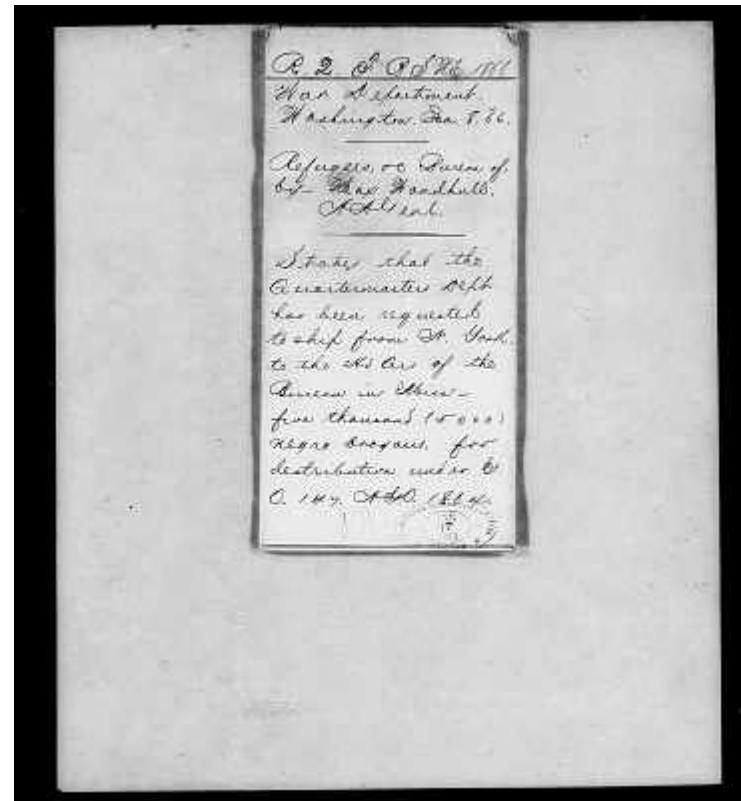 War Department
Washington, Jan. 8, 66.
Refugees, &c Bureau of.
by Max Woodhull.
A A Genl.
States that the
Quartermasters Dept
has been requested
to ship from N. York
to the Hd Qrs of the
Bureau in Miss–
five thousand (5000)
negro brogans, for
distribution under
O. 147. A.G.O. 1864.